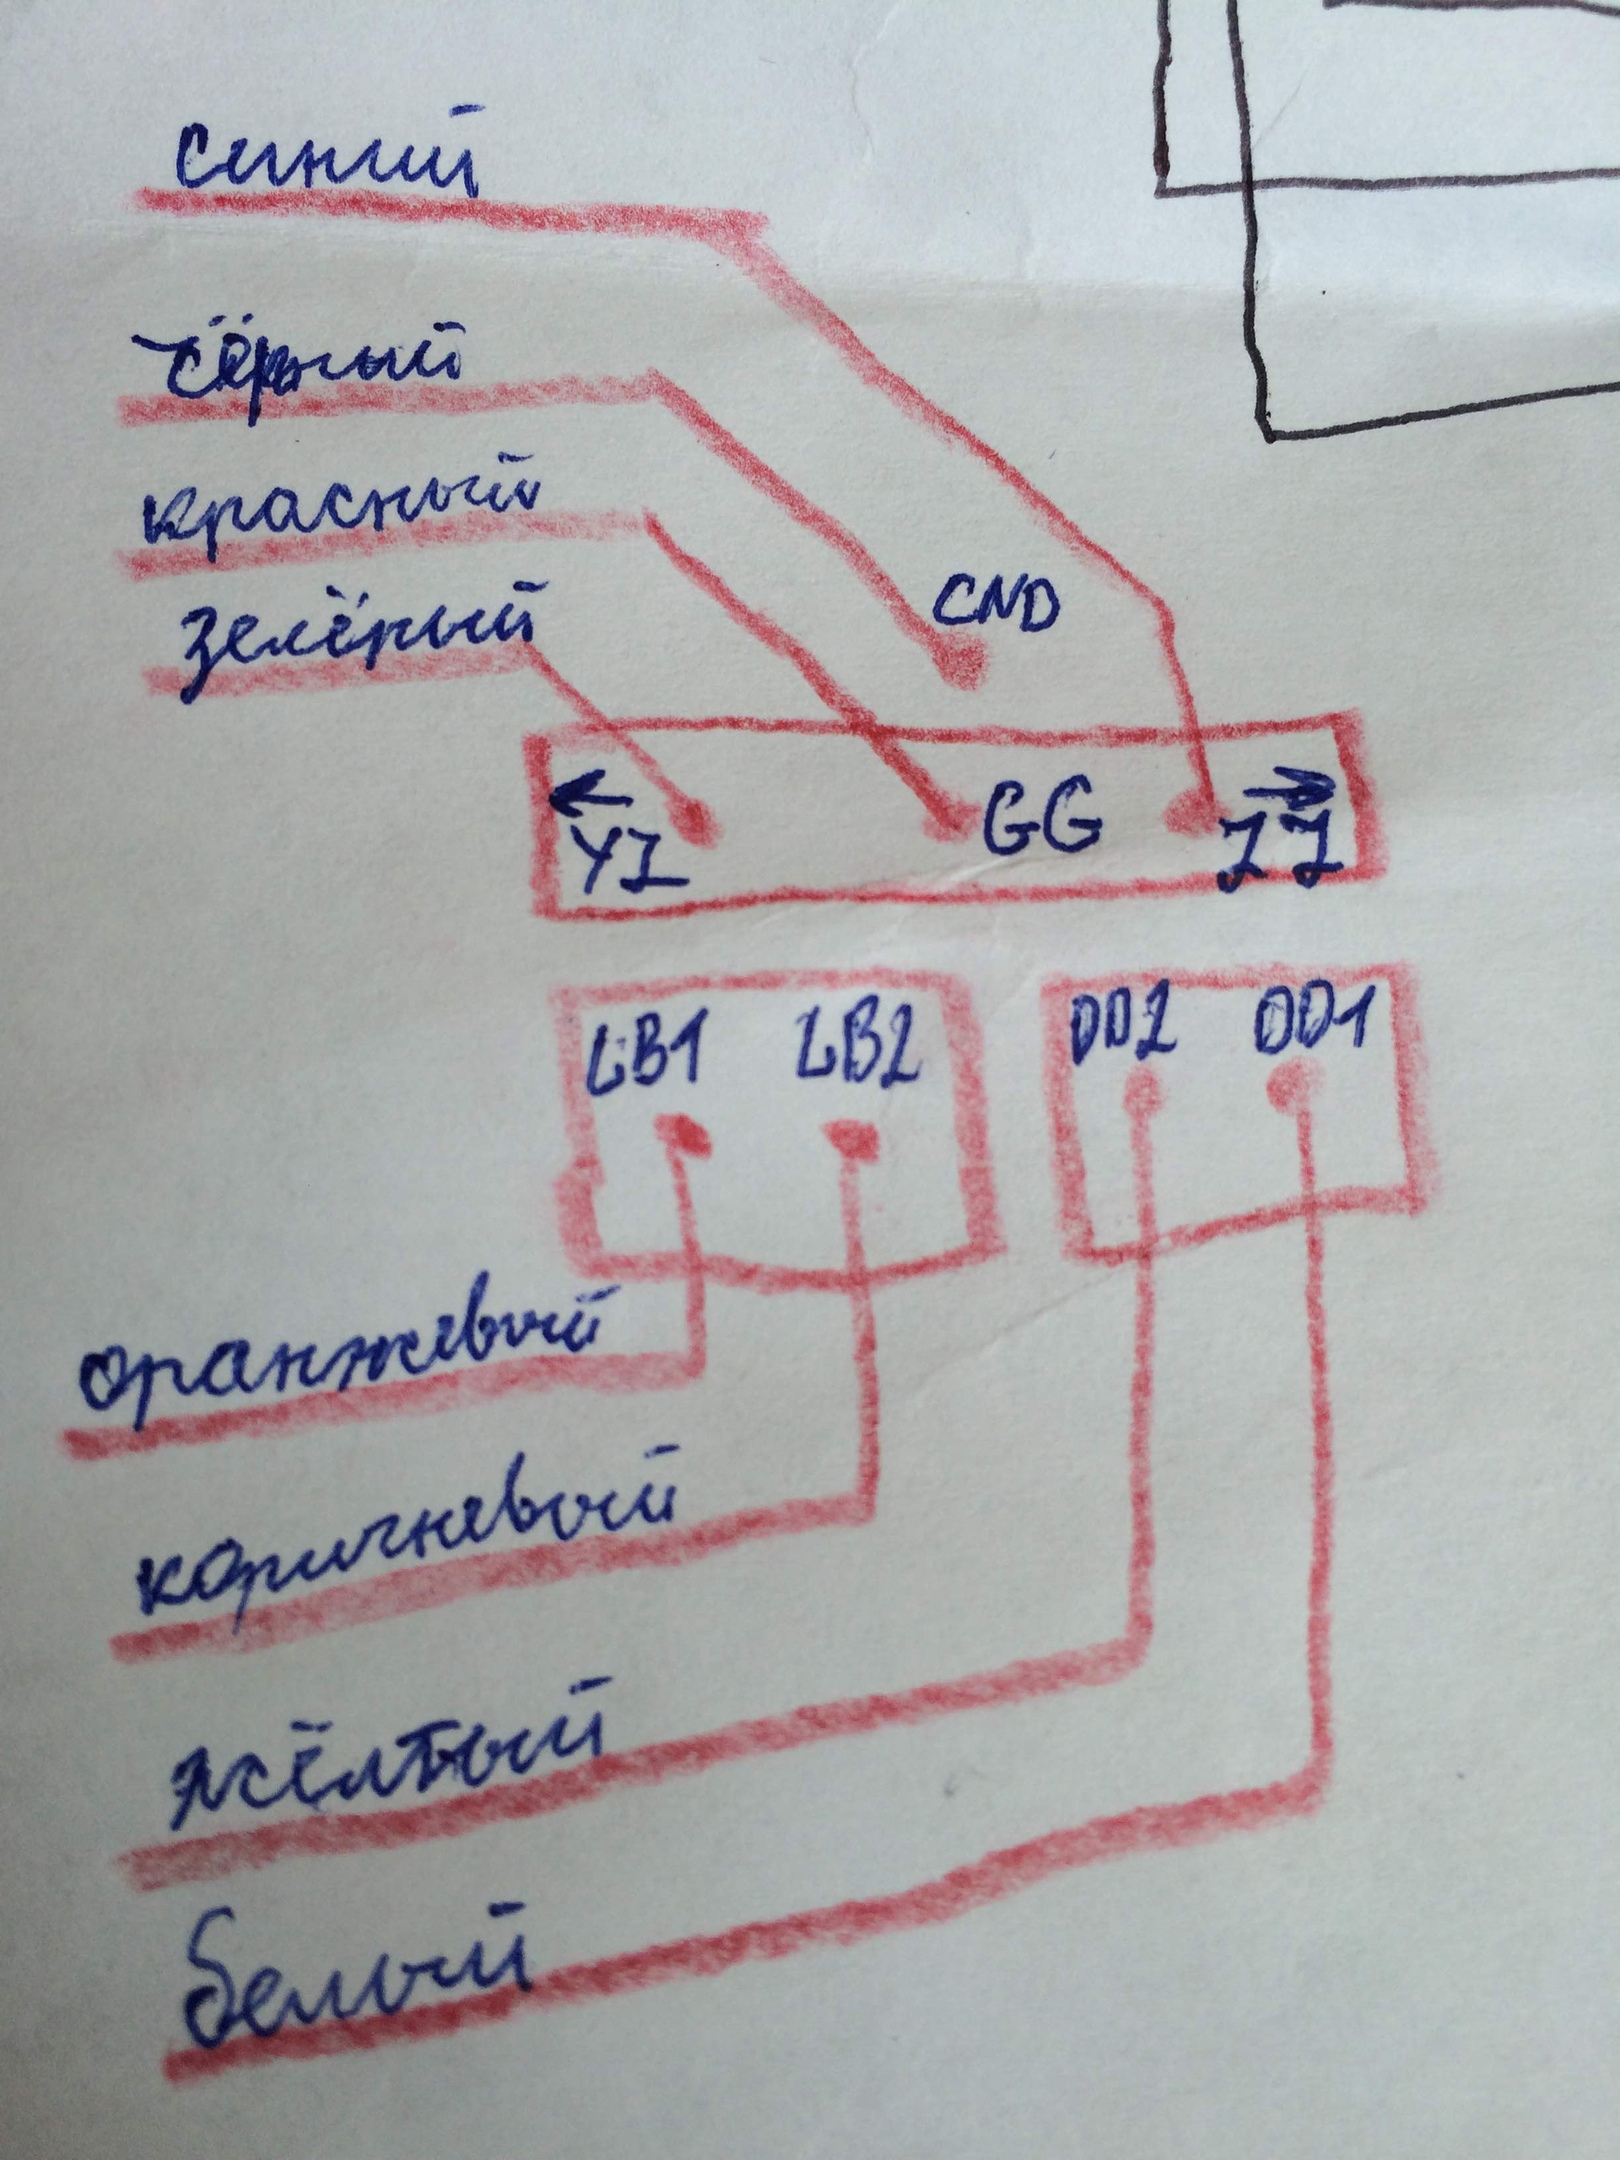 синий
чёрный
красный
зелёный
CND
← YI GG JJ →
LB1 LB2 DD2 DD1
оранжевый
коричневый
жёлтый
белый